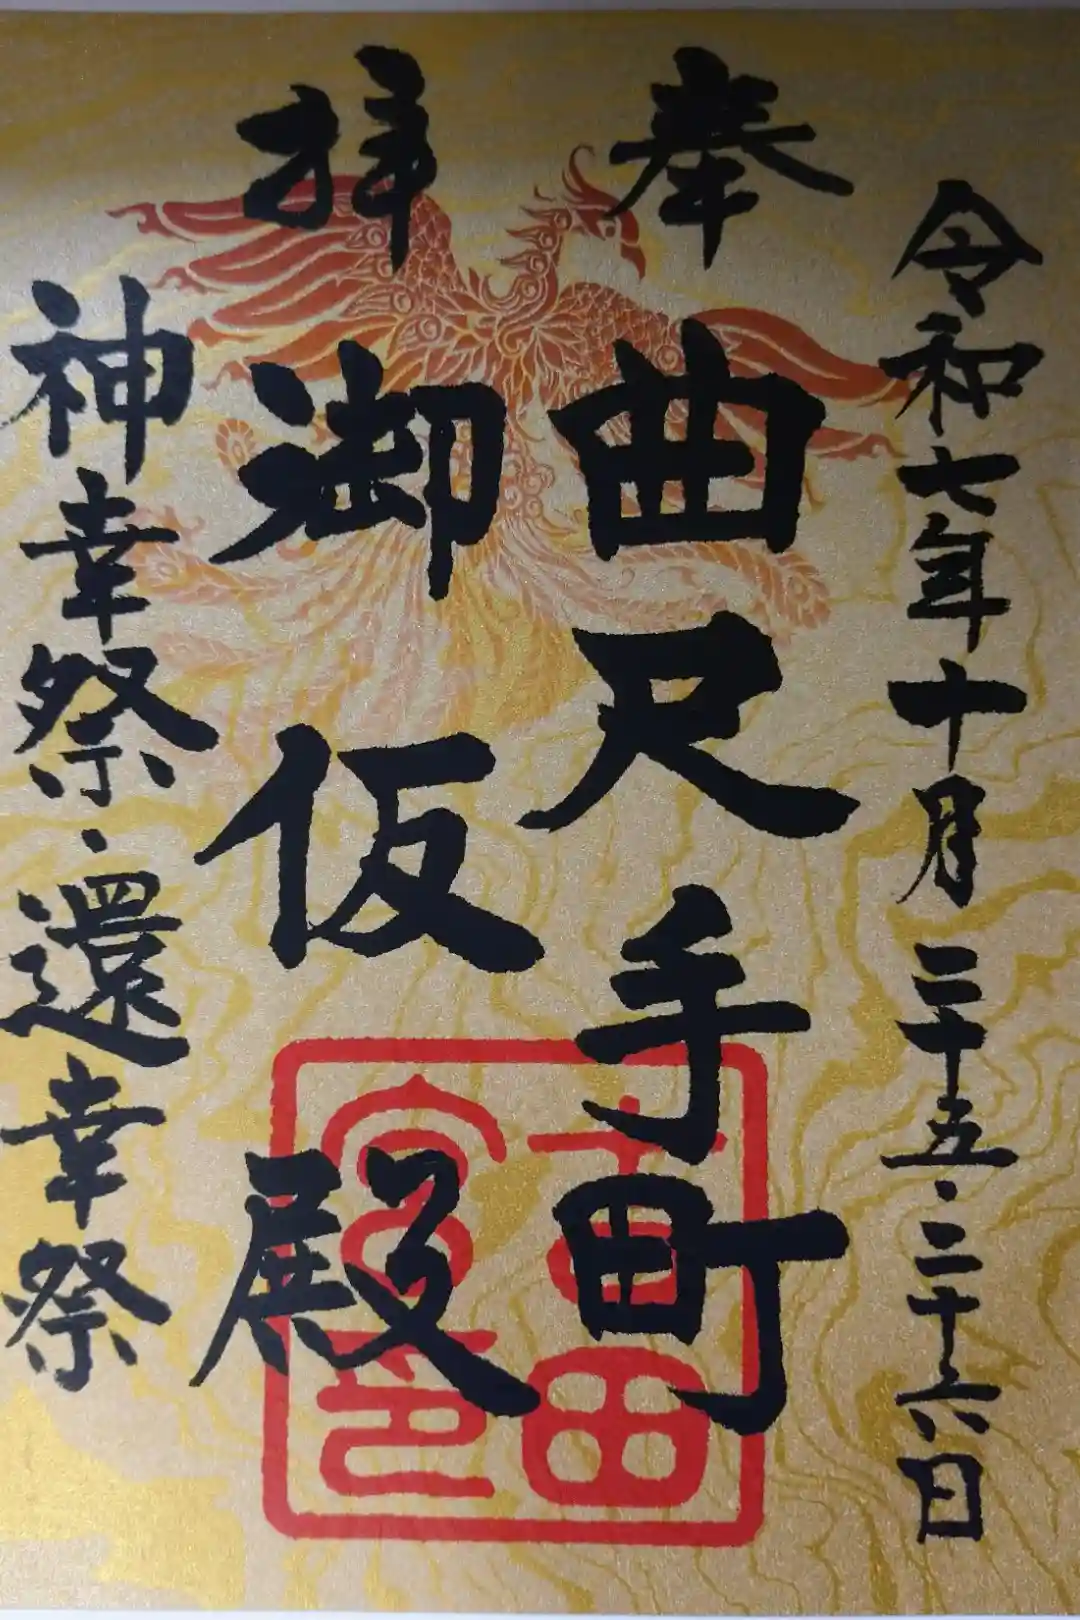 令和七年十月二十五・二十六日
奉 曲尺手町
拝 御仮殿
神幸祭・還幸祭
吉田宮印